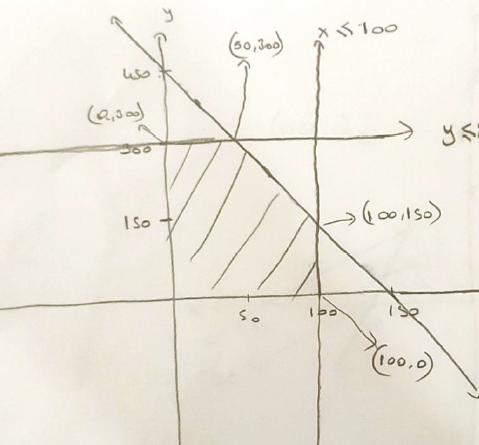 y
x ≤ 100
(50,300)
450
(0,300)
300
y ≤
150
(100,150)
50
100
150
(100,0)